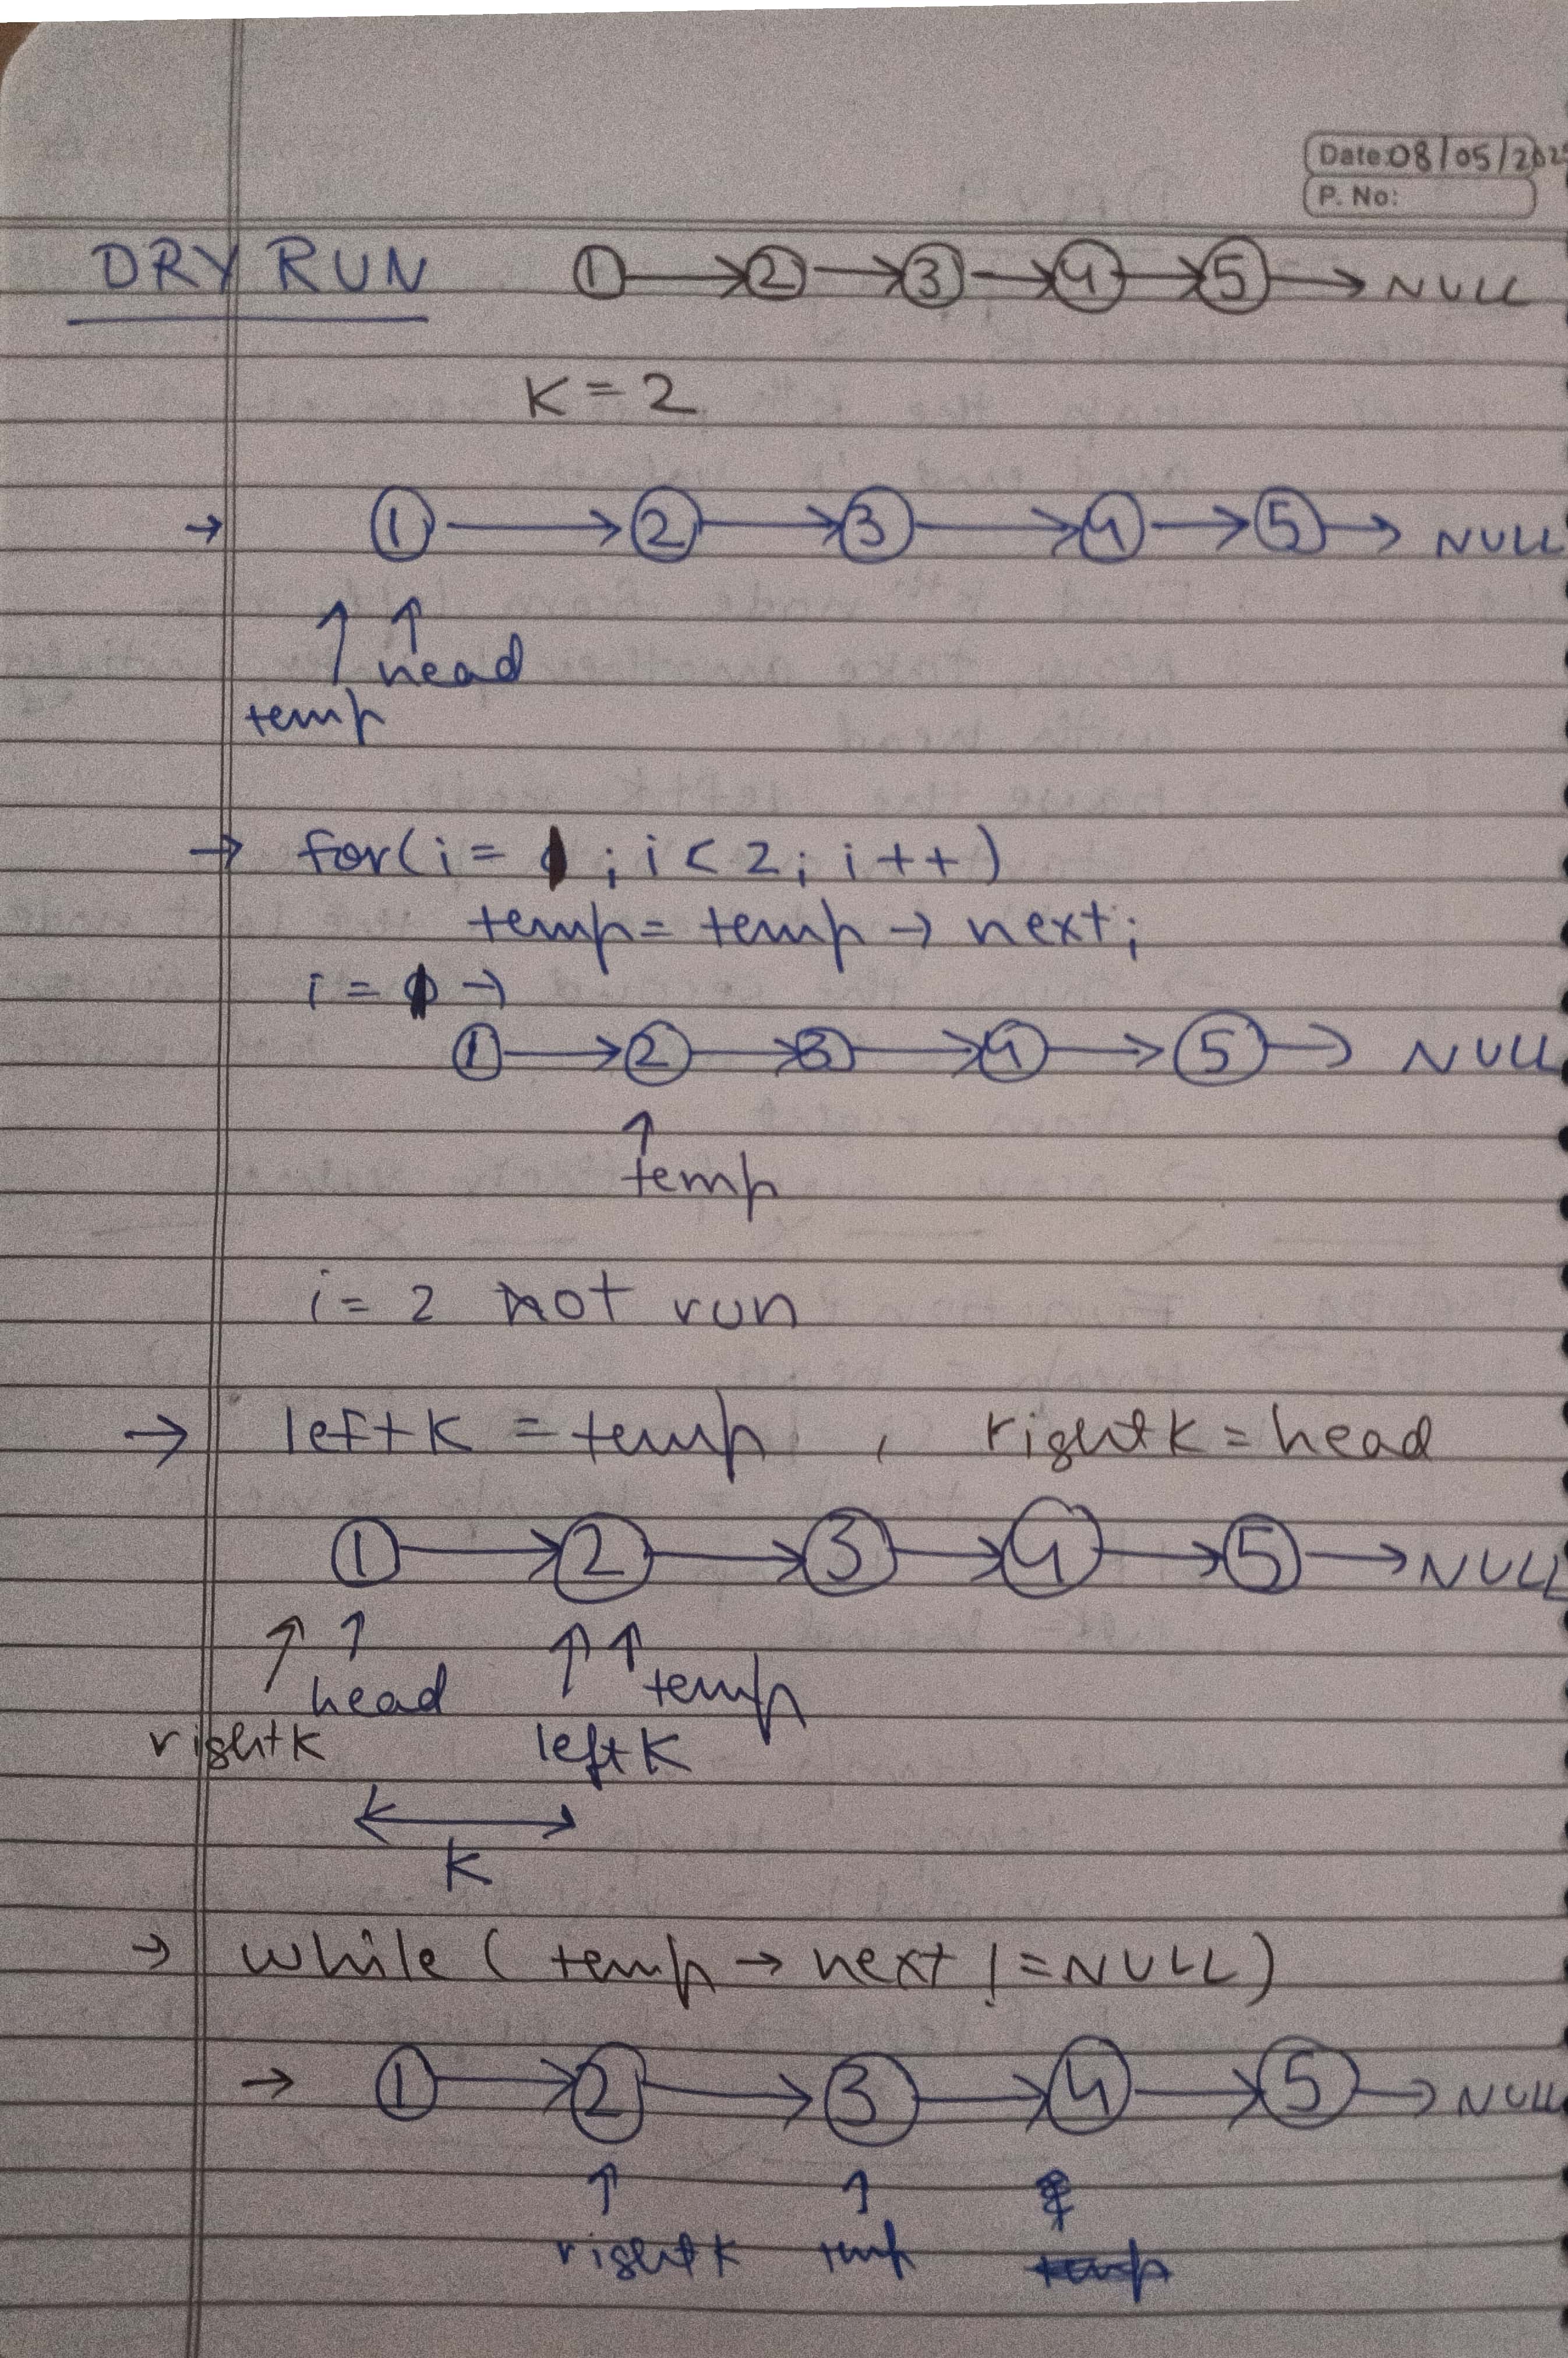 Date: 08/05/2025
P. No:
DRY RUN 1 → 2 → 3 → 4 → 5 → NULL
K = 2
→ 1 → 2 → 3 → 4 → 5 → NULL
↑ ↑
head
temp
→ for(i = 1; i < 2; i++)
temp = temp → next;
i = 1 →
1 → 2 → 3 → 4 → 5 → NULL
↑
temp
i = 2 not run
→ leftK = temp , rightK = head
1 → 2 → 3 → 4 → 5 → NULL
↑ ↑ ↑ ↑
head temp
rightK leftK
K
→ while ( temp → next != NULL)
→ 1 → 2 → 3 → 4 → 5 → NULL
↑ ↑
rightK temp